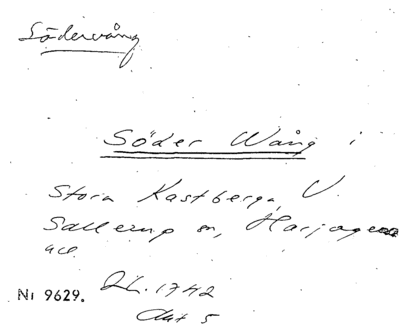 Södervång
Söder Wång i
Stora Kastberga, V.
Sallerup sn, Harjagers
Nr 9629. LL. 1742
Akt 5